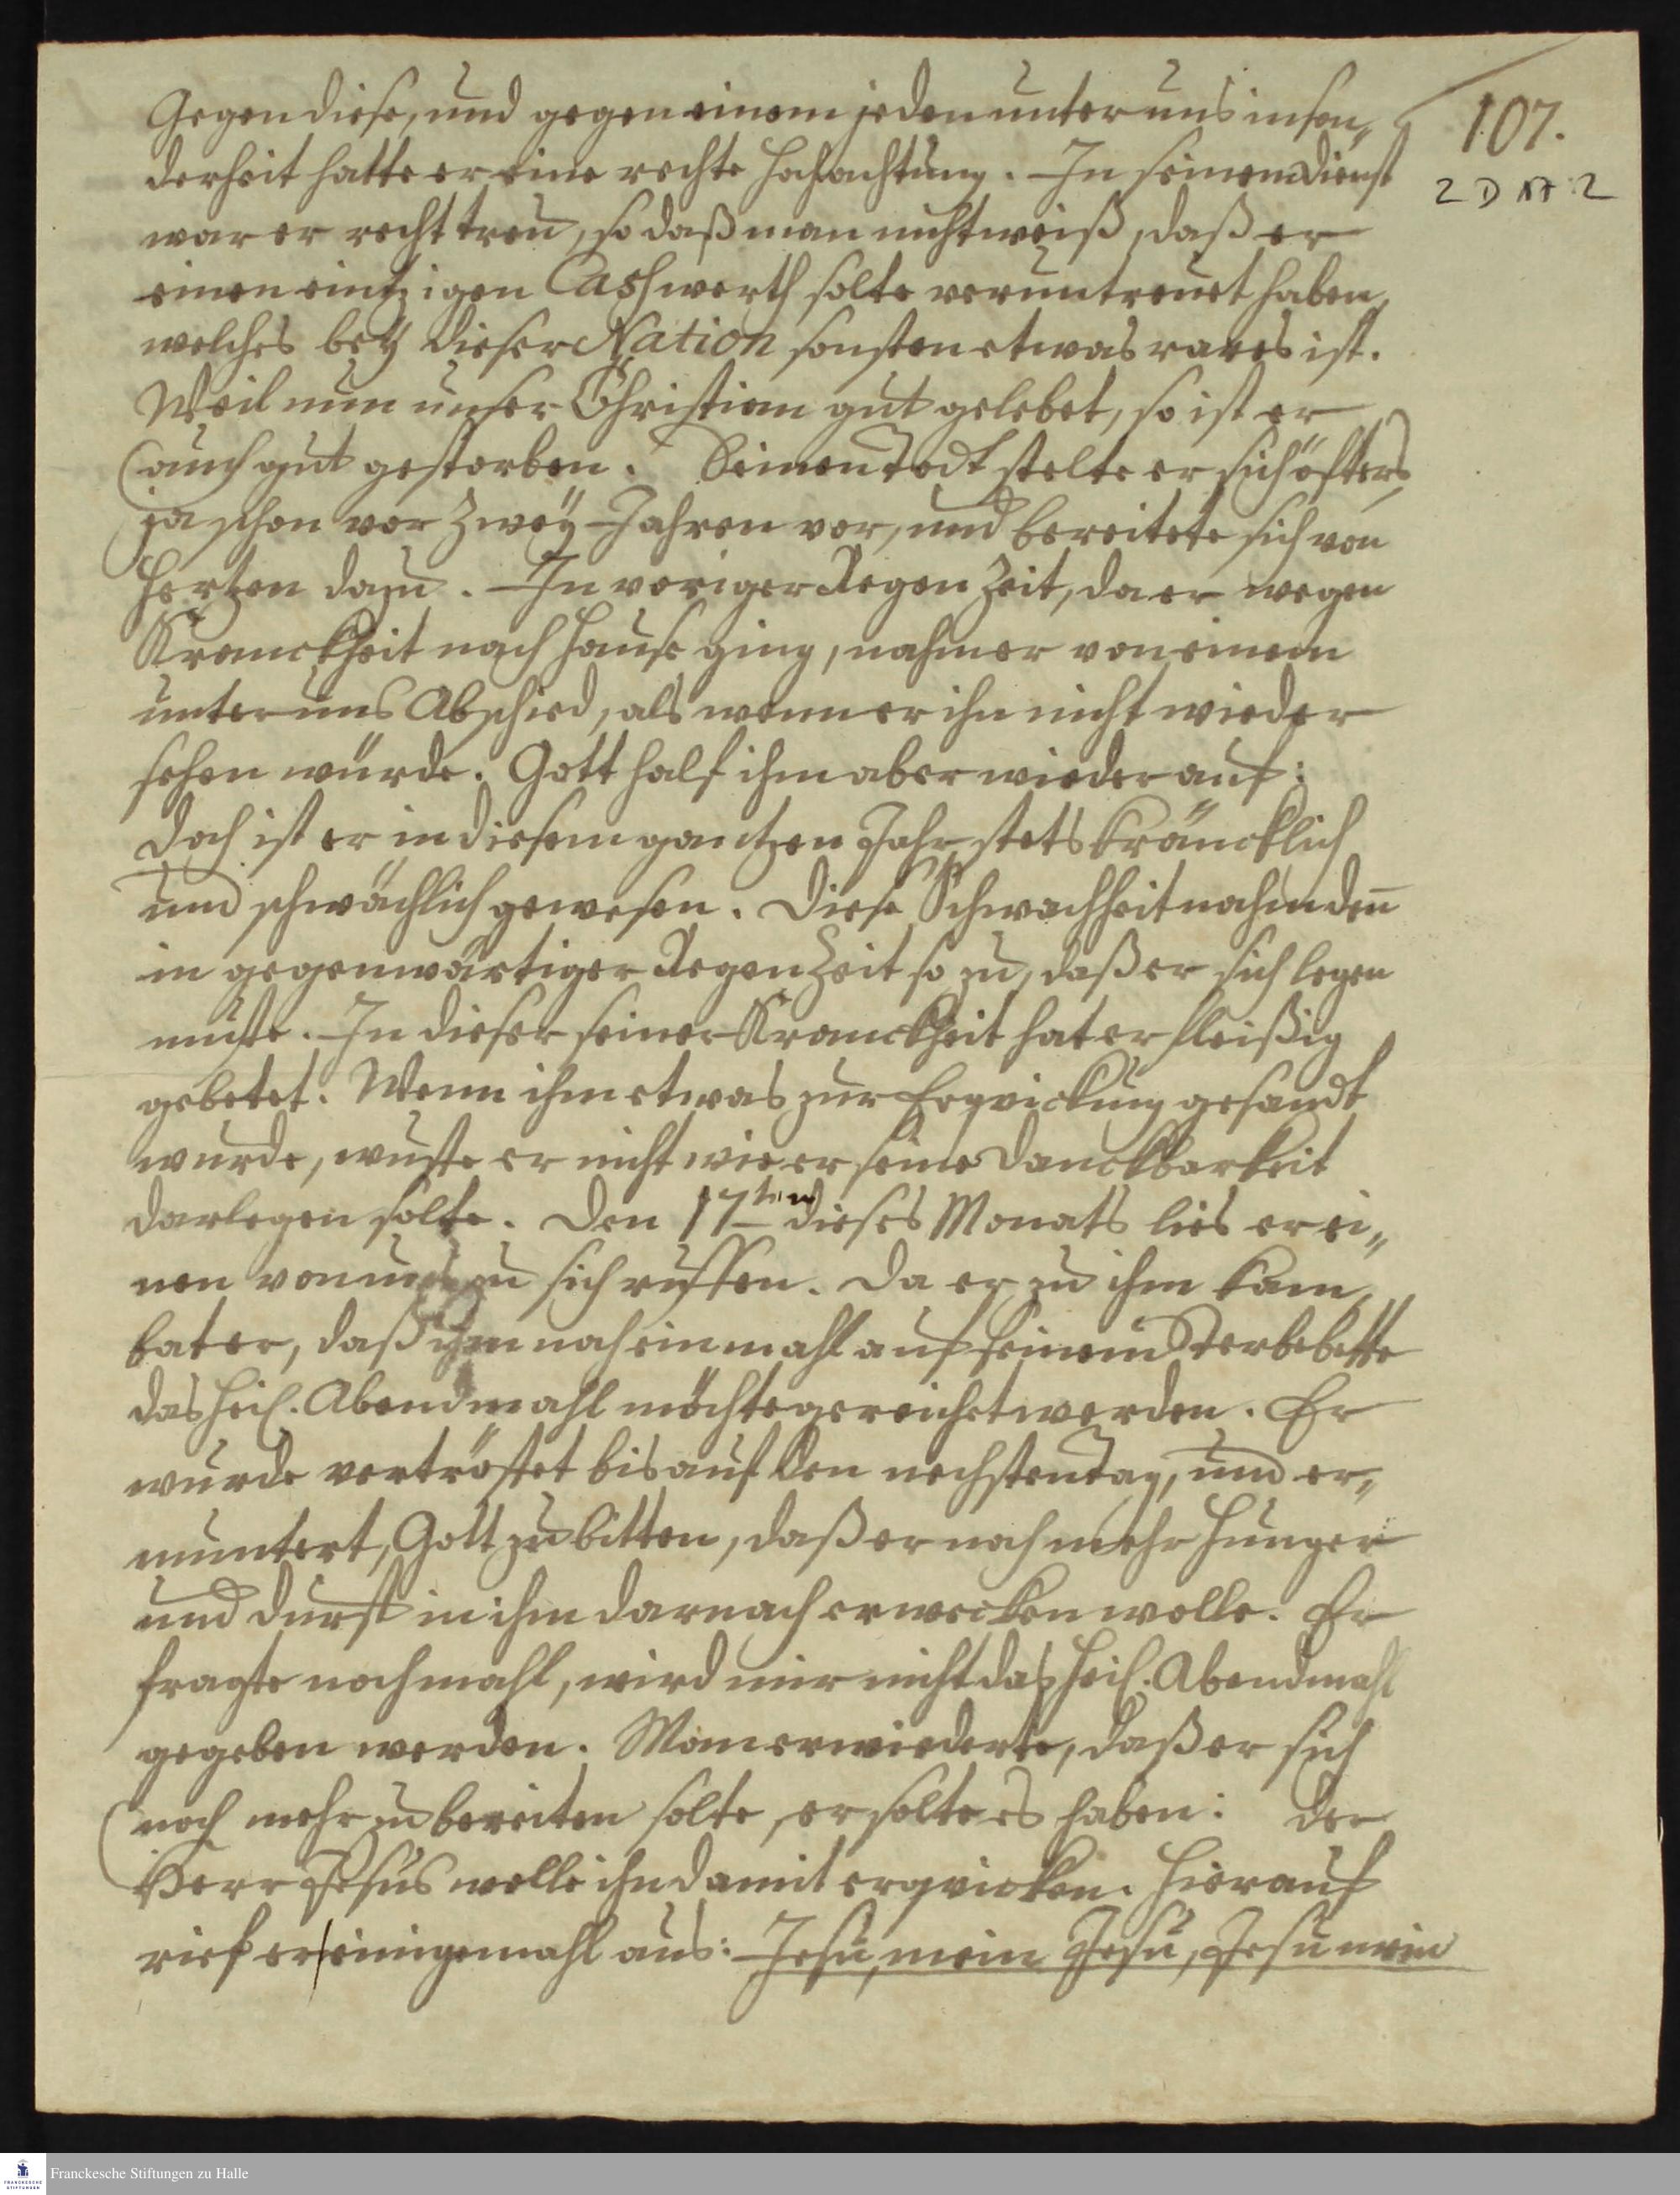 107.
2 D 17 : 2
Gegen diese, und gegen einem jeden unter uns inson„
derheit hatte er eine rechte Hochachtung. In seinem Dienst
war er recht treu, so daß man nicht weiß, daß er
einen eintzigen Cashwerth solte veruntreuet haben,
welches bey dieser Nation sonsten etwas rares ist.
Weil nun unser Christian gut gelebet, so ist er
auch gut gestorben. Seinen Todt stelte er sich öfters,
ja schon vor zwey Jahren vor, und bereitete sich von
Hertzen dazu. In voriger Regen Zeit, da er wegen
Kranckheit nach Hause ging, nahm er von einem
unter uns Abschied, als wenn er ihn nicht wieder
sehen würde. Gott half ihm aber wieder auf:
Doch ist er in diesem gantzen Jahr stets kräncklich
und schwächlich gewesen. Diese Schwachheit nahm den̄
in gegenwärtiger Regen Zeit so zu, daß er sich legen
muste. In dieser seiner Kranckheit hat er fleißig
gebetet. Wenn ihm etwas zur Erqvickung gesandt
wurde, wuste er nicht wie er seine Danckbarkeit
darlegen solte. Den 17ten dieses Monats lies er ei„
nen von uns zu sich ruffen. Da er zu ihm kam,
bat er, daß ihm noch einmahl auf seinem Sterbebette
das Heil. Abendmahl möchte gereichet werden. Er
wurde vertröstet bis auf den nechsten Tag, und er„
muntert, Gott zu bitten, daß er noch mehr Hunger
und Durst in ihm darnach erwecken wolle. Er
fragte nochmahl, wird mir nicht das Heil. Abendmahl
gegeben werden. Man erwiederte, daß er sich
noch mehr zu bereiten solte, er solte es haben: der
Herr Jesus wolle ihn damit erqvicken. Hierauf
rief er einigemahl aus: Jesu, mein Jesu, Jesu mein
Franckesche Stiftungen zu Halle